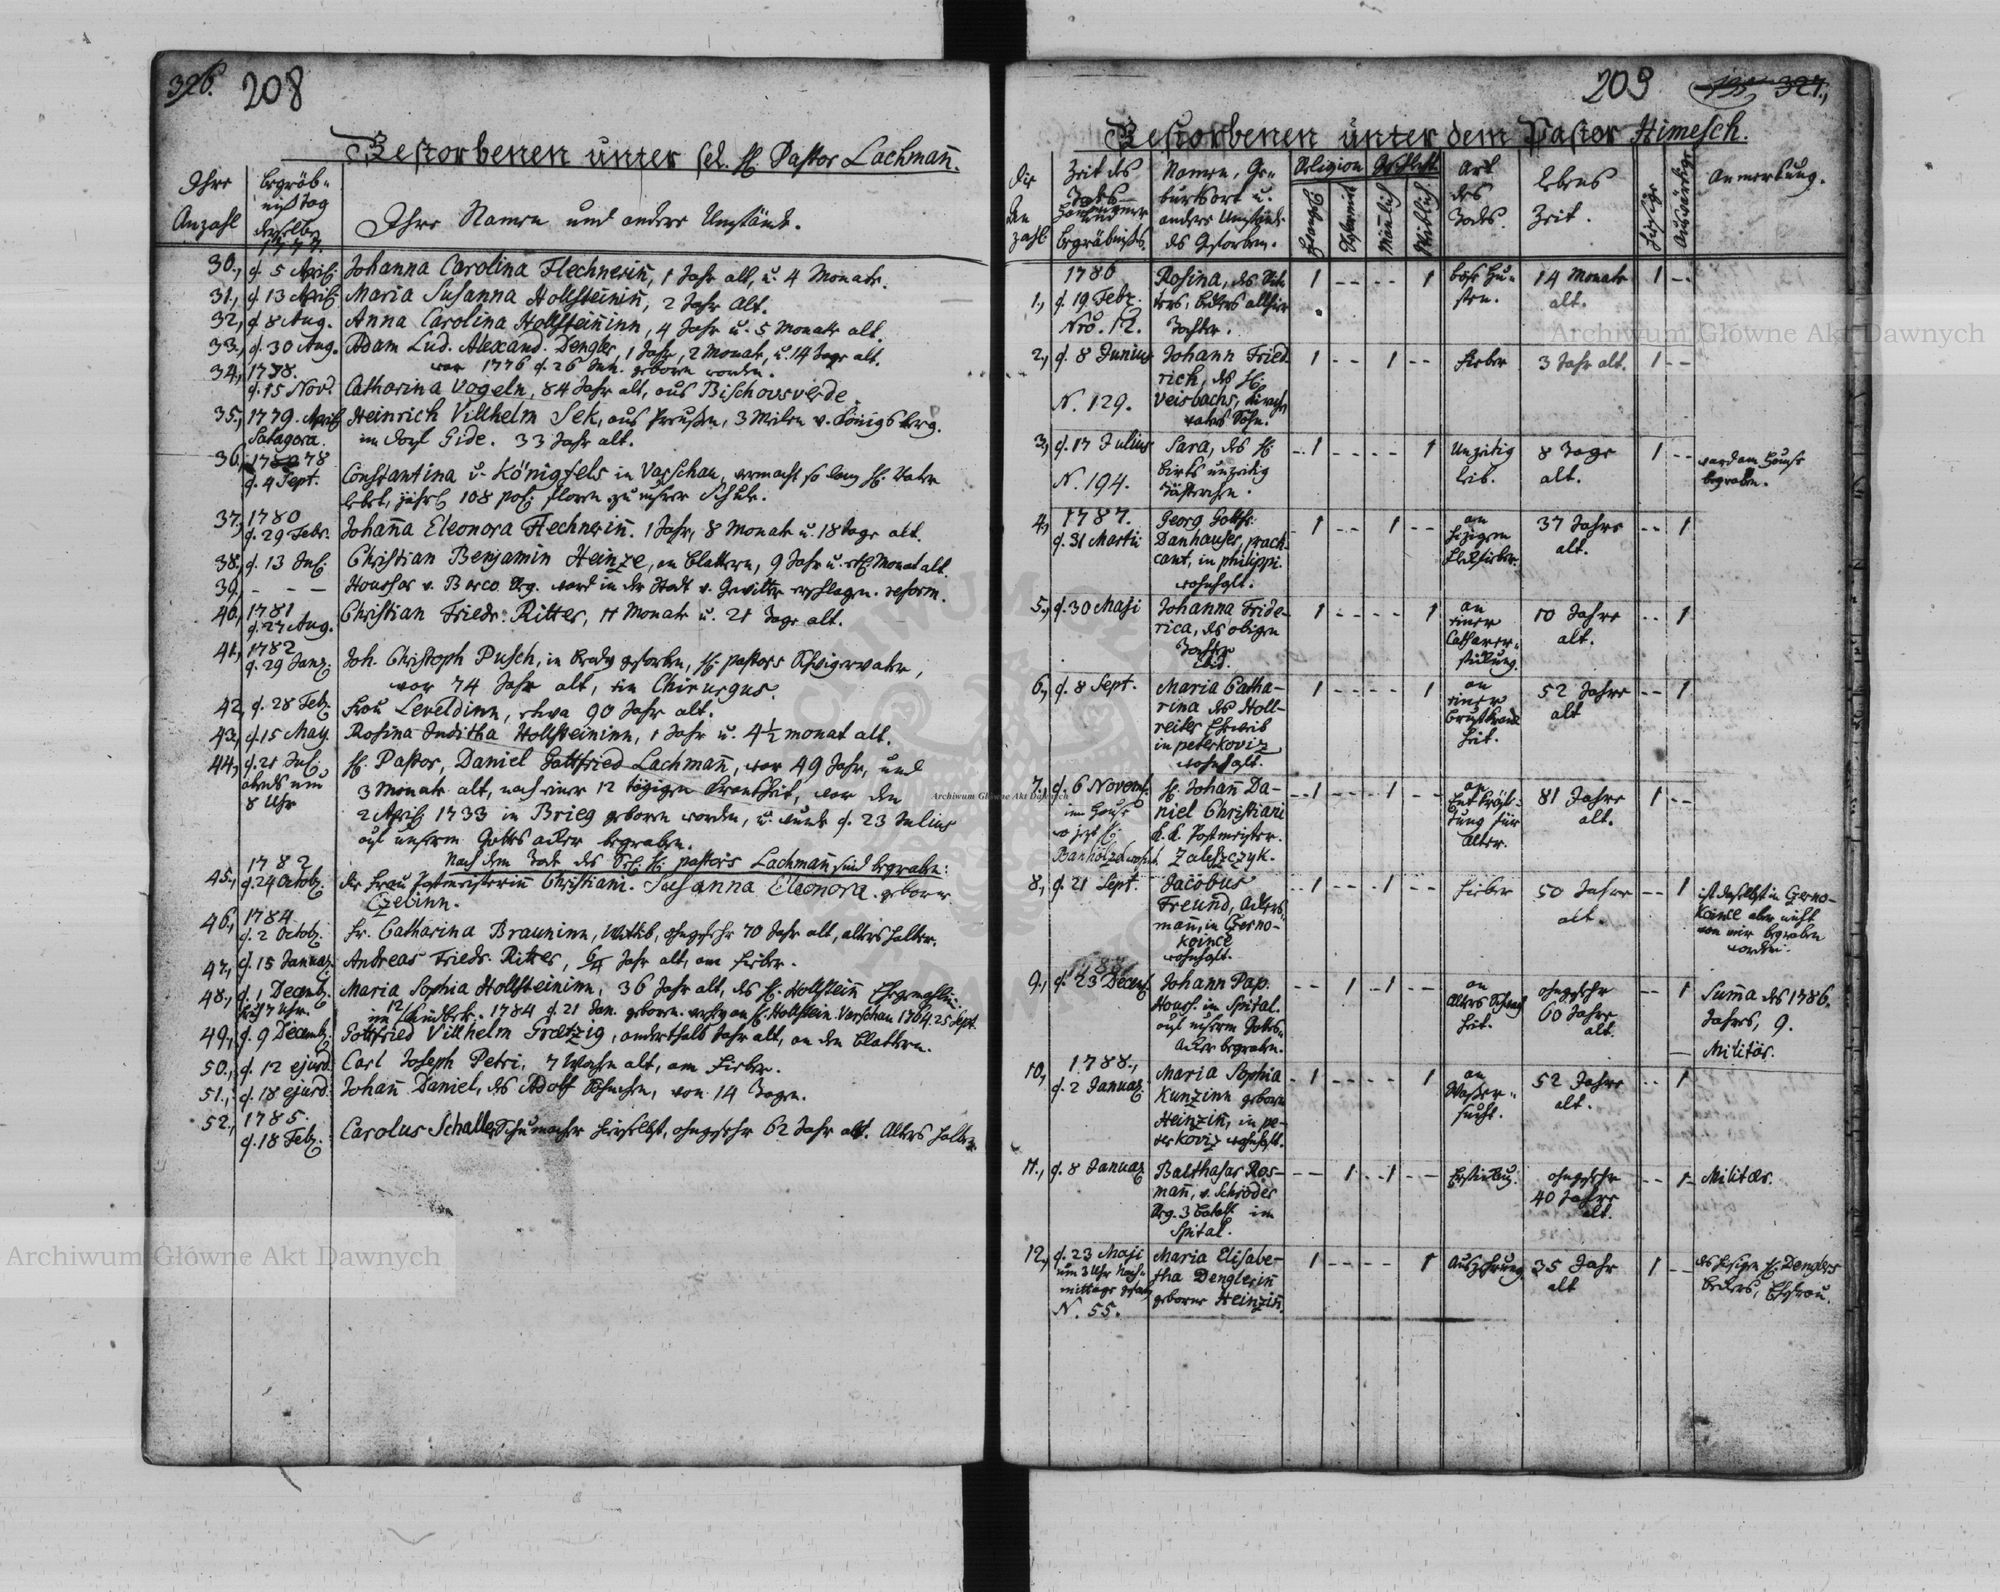 326. 208
Gestorbenen unter sel. H. Pastor Lachmañ.
Ihre Anzahl
Begräbnißtag derselben
Ihre Namen und andere Umstände.
1777
30., d. 5 April Johanna Carolina Flechnerin, 1 Jahr alt, u. 4 Monate.
31., d. 13 April Maria Susanna Hollsteinin, 2 Jahr alt.
32., d. 8 Aug. Anna Carolina Hollsteininn, 4 Jahr u. 5 Monate alt.
33., d. 30 Aug. Adam Lud. Alexand. Dengler, 1 Jahr, 2 Monate, u. 14 Tage alt.
war 1776 d. 26 Jun. geboren worden.
34., 1778.
d. 15 Nov. Catharina Vogeln, 84 Jahr alt, aus Bischovsverde.
35., 1779. April Heinrich Villhelm Sek, aus Preußen, 3 Meilen v. Königsberg.
Satagora. im Dorf Gide. 33 Jahr alt.
36., 1778
d. 4 Sept. Constantina v. Königsfels in Varschau, vermacht so lang H. Vater
lebet, jährl. 108 pol. floren zu unsrer Schule.
37., 1780
d. 29 Febr. Johaña Eleonora Flechnerin. 1 Jahr, 8 Monate u. 18 Tage alt.
38., d. 13 Jul. Christian Benjamin Heinze, an Blattern, 9 Jahr u. Monat alt.
39., - - - v. Barco Reg. ward in der Stadt v. Gewitter erschlagen. reform.
40., 1781
d. 27 Aug. Christian Friedr. Ritter, 11 Monate u. 21 Tage alt.
41., 1782
d. 29 Janr. Joh. Christoph Pusch, in Brody gestorben, H. Pastors Schwigervater,
war 74 Jahr alt, ein Chirurgus.
42., d. 28 Feb. Frau Leveldinn, etwa 90 Jahr alt.
43., d. 15 May. Rosina Juditha Hollsteininn, 1 Jahr u. 4½ monat alt.
44., d. 21 Jul. H. Pastor, Daniel Gottfried Lachmañ, war 49 Jahr, und
abends um 8 Uhr 3 Monate alt, nach einer 12 tägigen Krankheit, war den
2 April 1733 in Brieg geboren worden, u. wurde d. 23 Julius
auf unserm Gottes acker begraben.
Nach dem Tode des Sel. H. Pastors Lachmañ sind begraben:
1782
45., d. 24 Octob. die Frau Postmeisterinn Christiani. Susanna Eleonora. geborne
Czelinn.
46., 1784
d. 2 Octob. Fr. Catharina Brauninn, Wittib, ohngefehr 70 Jahr alt, alters halber.
47., d. 15 Januar. Andreas Friedr. Ritter, Jahr alt, am Fieber.
48., d. 1 Decemb. Maria Sophia Hollsteininn, 36 Jahr alt, des H. Hollstein Ehegemahlin:
17 Uhr. im 12 Kindbett. 1784 d. 21 Jan. geboren. H. Hollstein. Varschau 1764. 25 Sept.
49., d. 9 Decemb. Gottfried Villhelm Grætzig, anderthalb Jahr alt, an den Blattern.
50., d. 12 ejusd. Carl Joseph Petri, 7 Wochen alt, am Fieber.
51., d. 18 ejusd. Johañ Daniel, des Adolf Söhnchen, von 14 Tagen.
52., 1785.
d. 18 Feb. Carolus Schaller Schumacher hieselbst, ohngefehr 62 Jahr alt. Alters halber.
209 327.,
Gestorbenen unter dem Pastor Himesch.
Die den zahl
Zeit des Todes und Begräbnißes.
Namen, Geburtsort u. andere Umstände des Gestorben.
Religion Geschlecht
Evangel. Mänlich Weiblich
Art des Todes.
Lebens Zeit.
Hiesige Auswärtige
Anmerkung.
1786
1., d. 19. Febr. No. 12. Rosina, des Ritters, Beckers allhier Tochter. 1 - - - - 1 böse Husten. 14 Monate alt. 1 - -
2., d. 8 Junius N. 129. Johann Friedrich, des H. Veisbachs, Kirchvaters Sohn. 1 - - 1 - - Fieber 3 Jahr alt. 1 - -
3., d. 17 Julius N. 194. Sara, des H. Birts unzeitig Töchterchen. - - 1 - - - - 1 Unzeitig 8 Tage alt. 1 - - begraben.
1787.
4., d. 31 Martii Georg Gottfr. Danhauser, practicant, in philippi. wohnhaft. - 1 - - 1 - - an hizigem 37 Jahre alt. - - 1
5., d. 30 Maji Johanna Friderica, des obigen Tochter ibid. 1 - - - - 1 an einer 10 Jahre alt. - - 1
6., d. 8 Sept. Maria Catharina des Hollreiter Eheweib in peterkoviz wohnhaft. 1 - - - - 1 an einer Brustkrankheit. 52 Jahre alt - - 1
7., d. 6 Novemb. im Hause wo jezt H. Banholzel wohnt. H. Johañ Daniel Christiani k. k. Postmeister. Zaleszczyk. - - 1 - - 1 - - an Entkräftung für Alter. 81 Jahre alt. 1 - -
8., d. 21 Sept. Jacobus Freund, Ackersmann, in Czernokoince wohnhaft. - - 1 - - 1 - - Fieber 50 Jahre alt. - - 1 ist daselbst in Czernokoince aber nicht von mir begraben worden.
9., d. 23 Decemb. Johann Pap. im Spital. auf unserm Gottes Acker begraben. - - 1 - 1 - - an Alters Schwachheit. ohngefehr 60 Jahre alt. - - 1 Summa des 1786. Jahres, 9.
— Militär.
1788.,
10., d. 2 Januar. Maria Sophia Kunzinn geborne Heinzin, in peterkoviz wohnhaft. - 1 - - - - 1 an Waßersucht. 52 Jahre alt. - - 1
11., d. 8 Januar Balthasar Rosmañ, v. Schröder Reg. 3 Batall. im Spital. - - 1 - - 1 - - ohngefehr 40 Jahre alt. - - 1 - Militär.
12., d. 23 Maji um 3 Uhr Nachmittags N. 55. Maria Elisabetha Denglerin geborne Heinzin. 1 - - - - 1 Auszehrung 35 Jahr alt 1 - - des hiesigen H. Denglers Beckers, Ehefrau.
Archiwum Główne Akt Dawnych
Archiwum Główne Akt Dawnych
Archiwum Główne Akt Dawnych